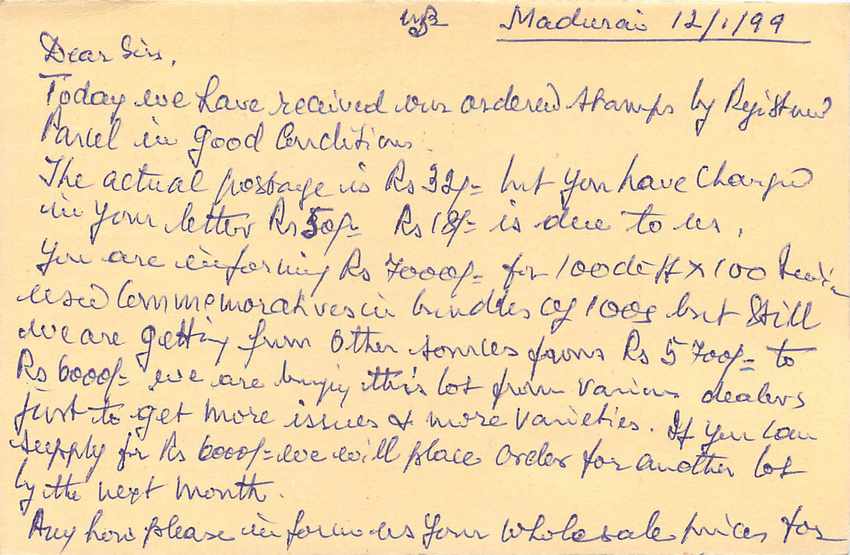 Madurai 12/1/99
Dear Sirs,
Today we have received our ordered stamps by Registered
Parcel in good Conditions.
The actual postage is Rs 32/- but you have Charged
in your letter Rs 50/- Rs 18/- is due to us,
You are informing Rs 7000/- for 100 diff x 100 India
used Commemoratives in bundles of 100s but still
we are getting from other sources from Rs 5700/- to
Rs 6000/- we are buying this lot from various dealers
just to get more issues & more varieties. If you can
supply for Rs 6000/- we will place order for another lot
by the next month.
Any how please inform us your wholesale prices for